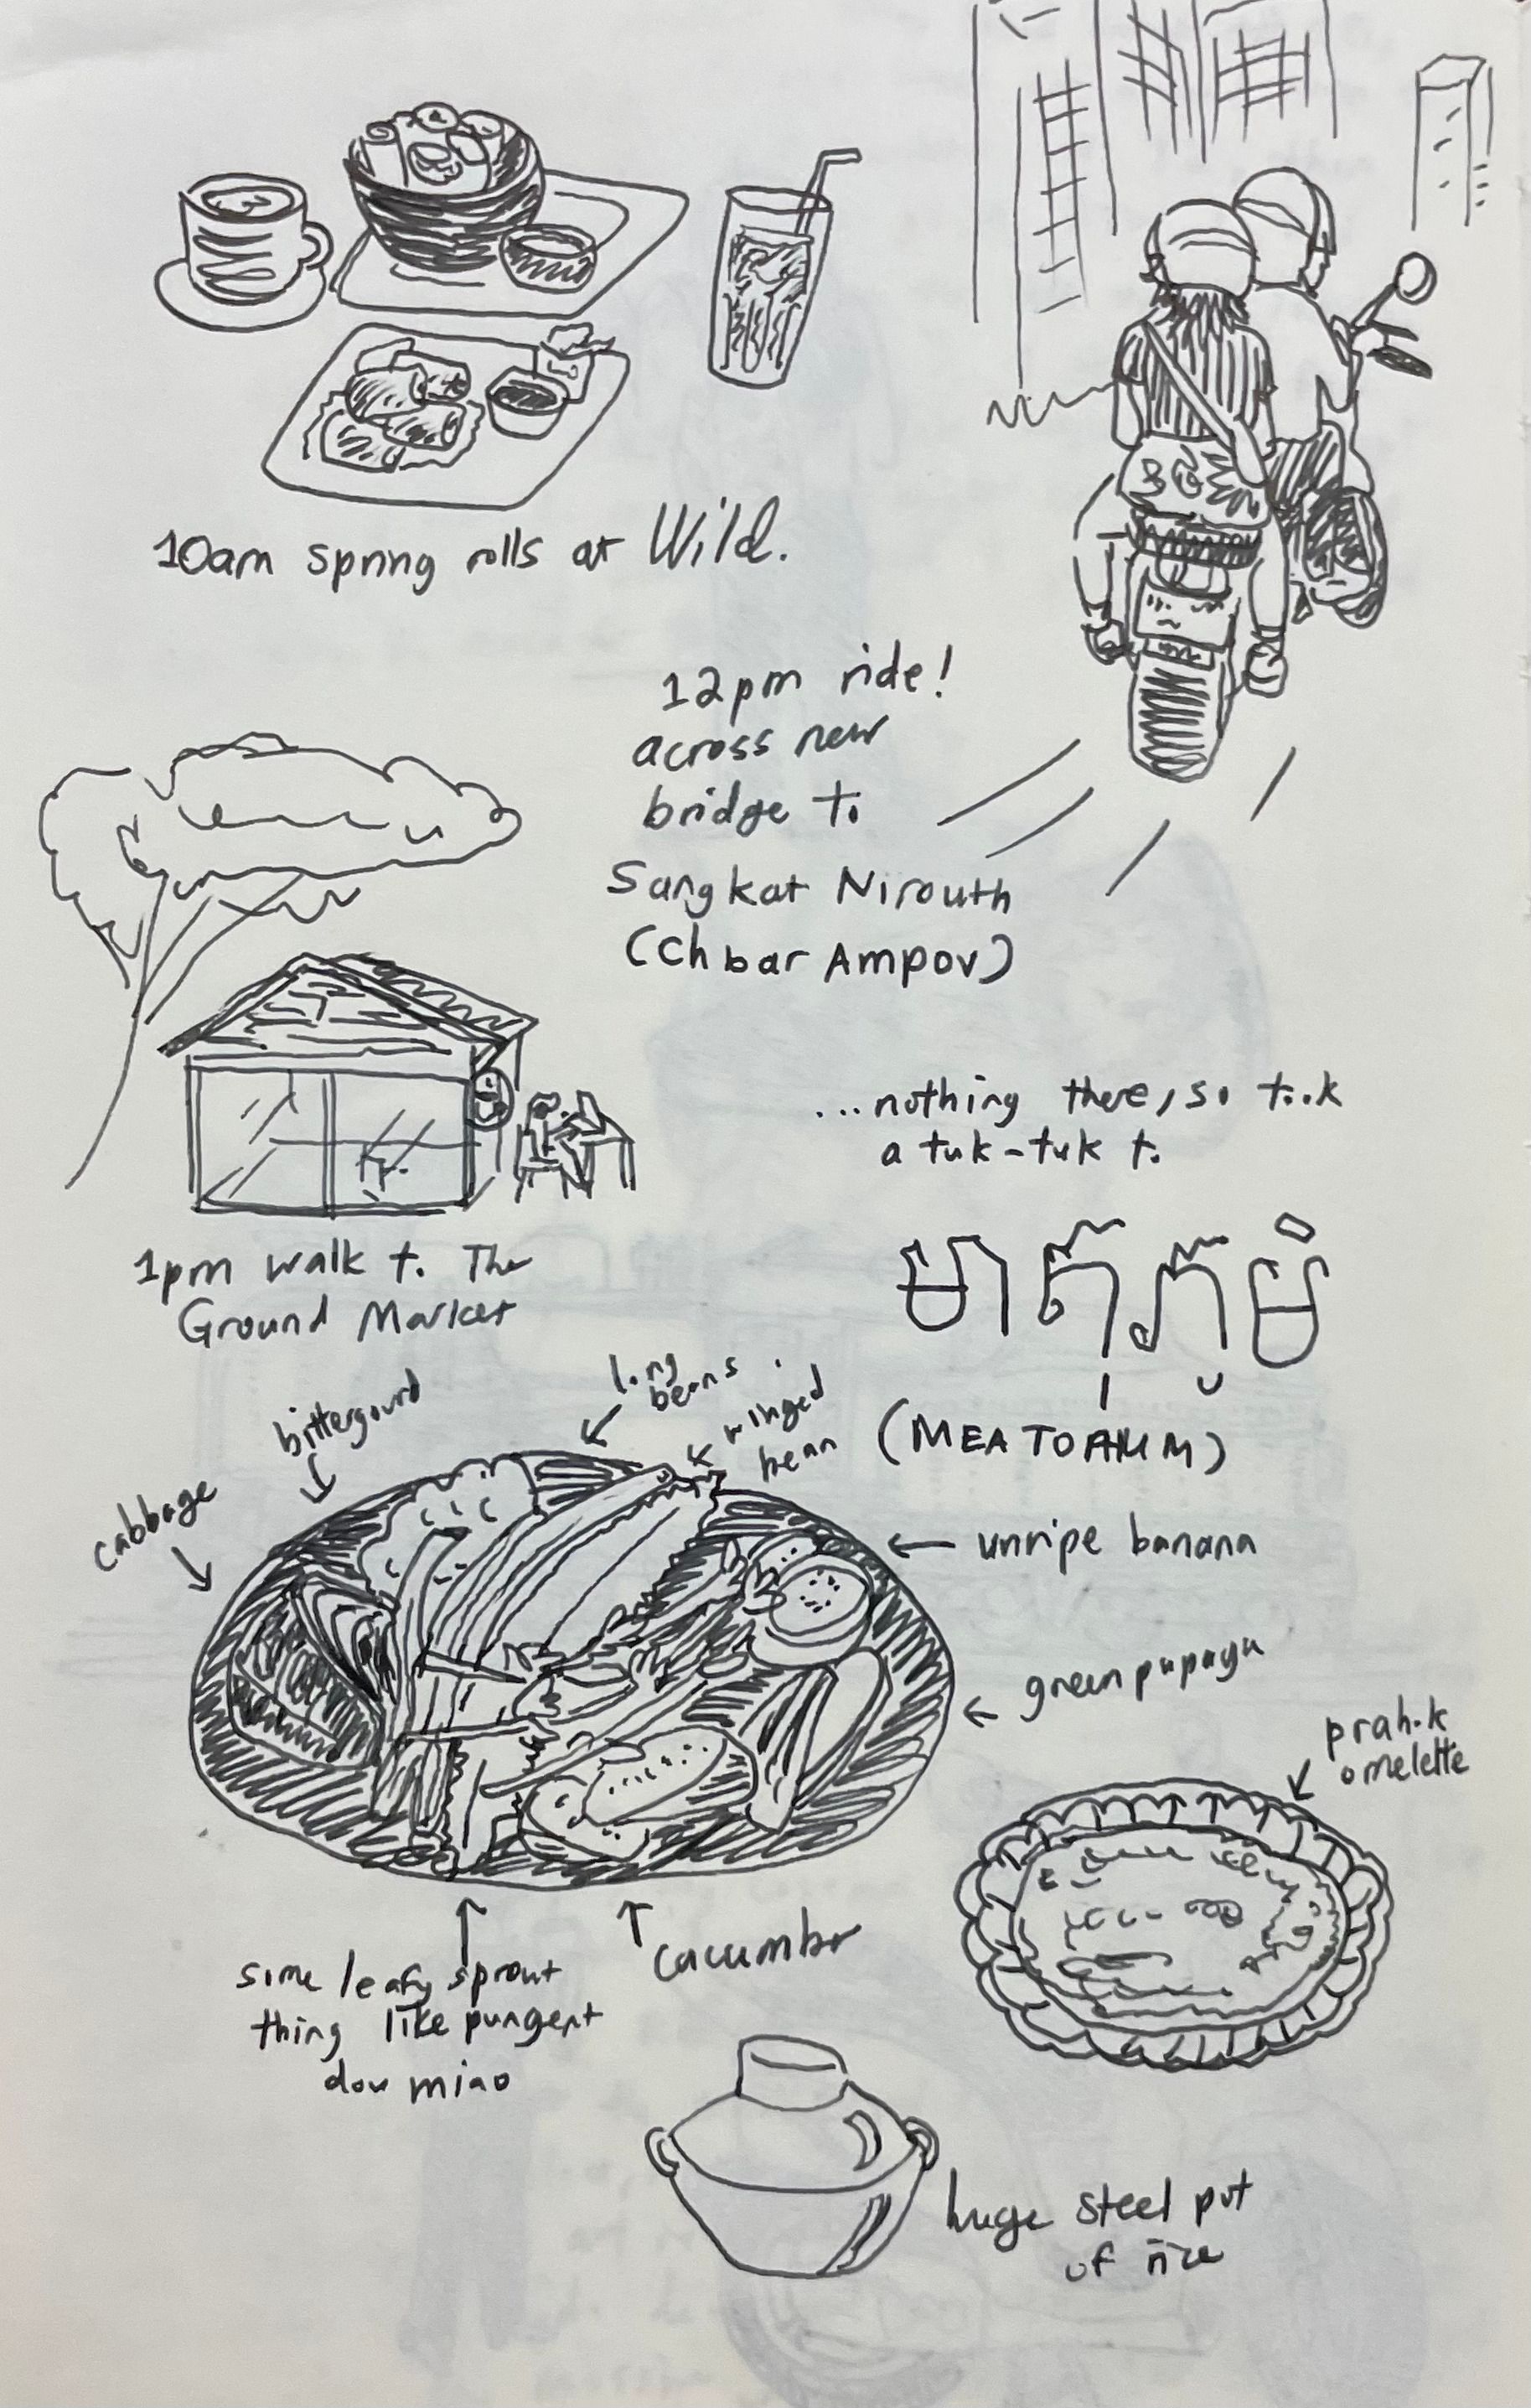 10am spring rolls at Wild.
12pm ride!
across new
bridge to
Sangkat Nirouth
(Chbar Ampov)
1pm walk to The
Ground Market
...nothing there, so took
a tuk-tuk to
(MEATOAMM)
cabbage
bittergourd
long
beans
winged
bean
unripe banana
green papaya
prahok
omelette
cucumbr
some leafy sprout
thing like pungent
dou miao
huge steel pot
of rice